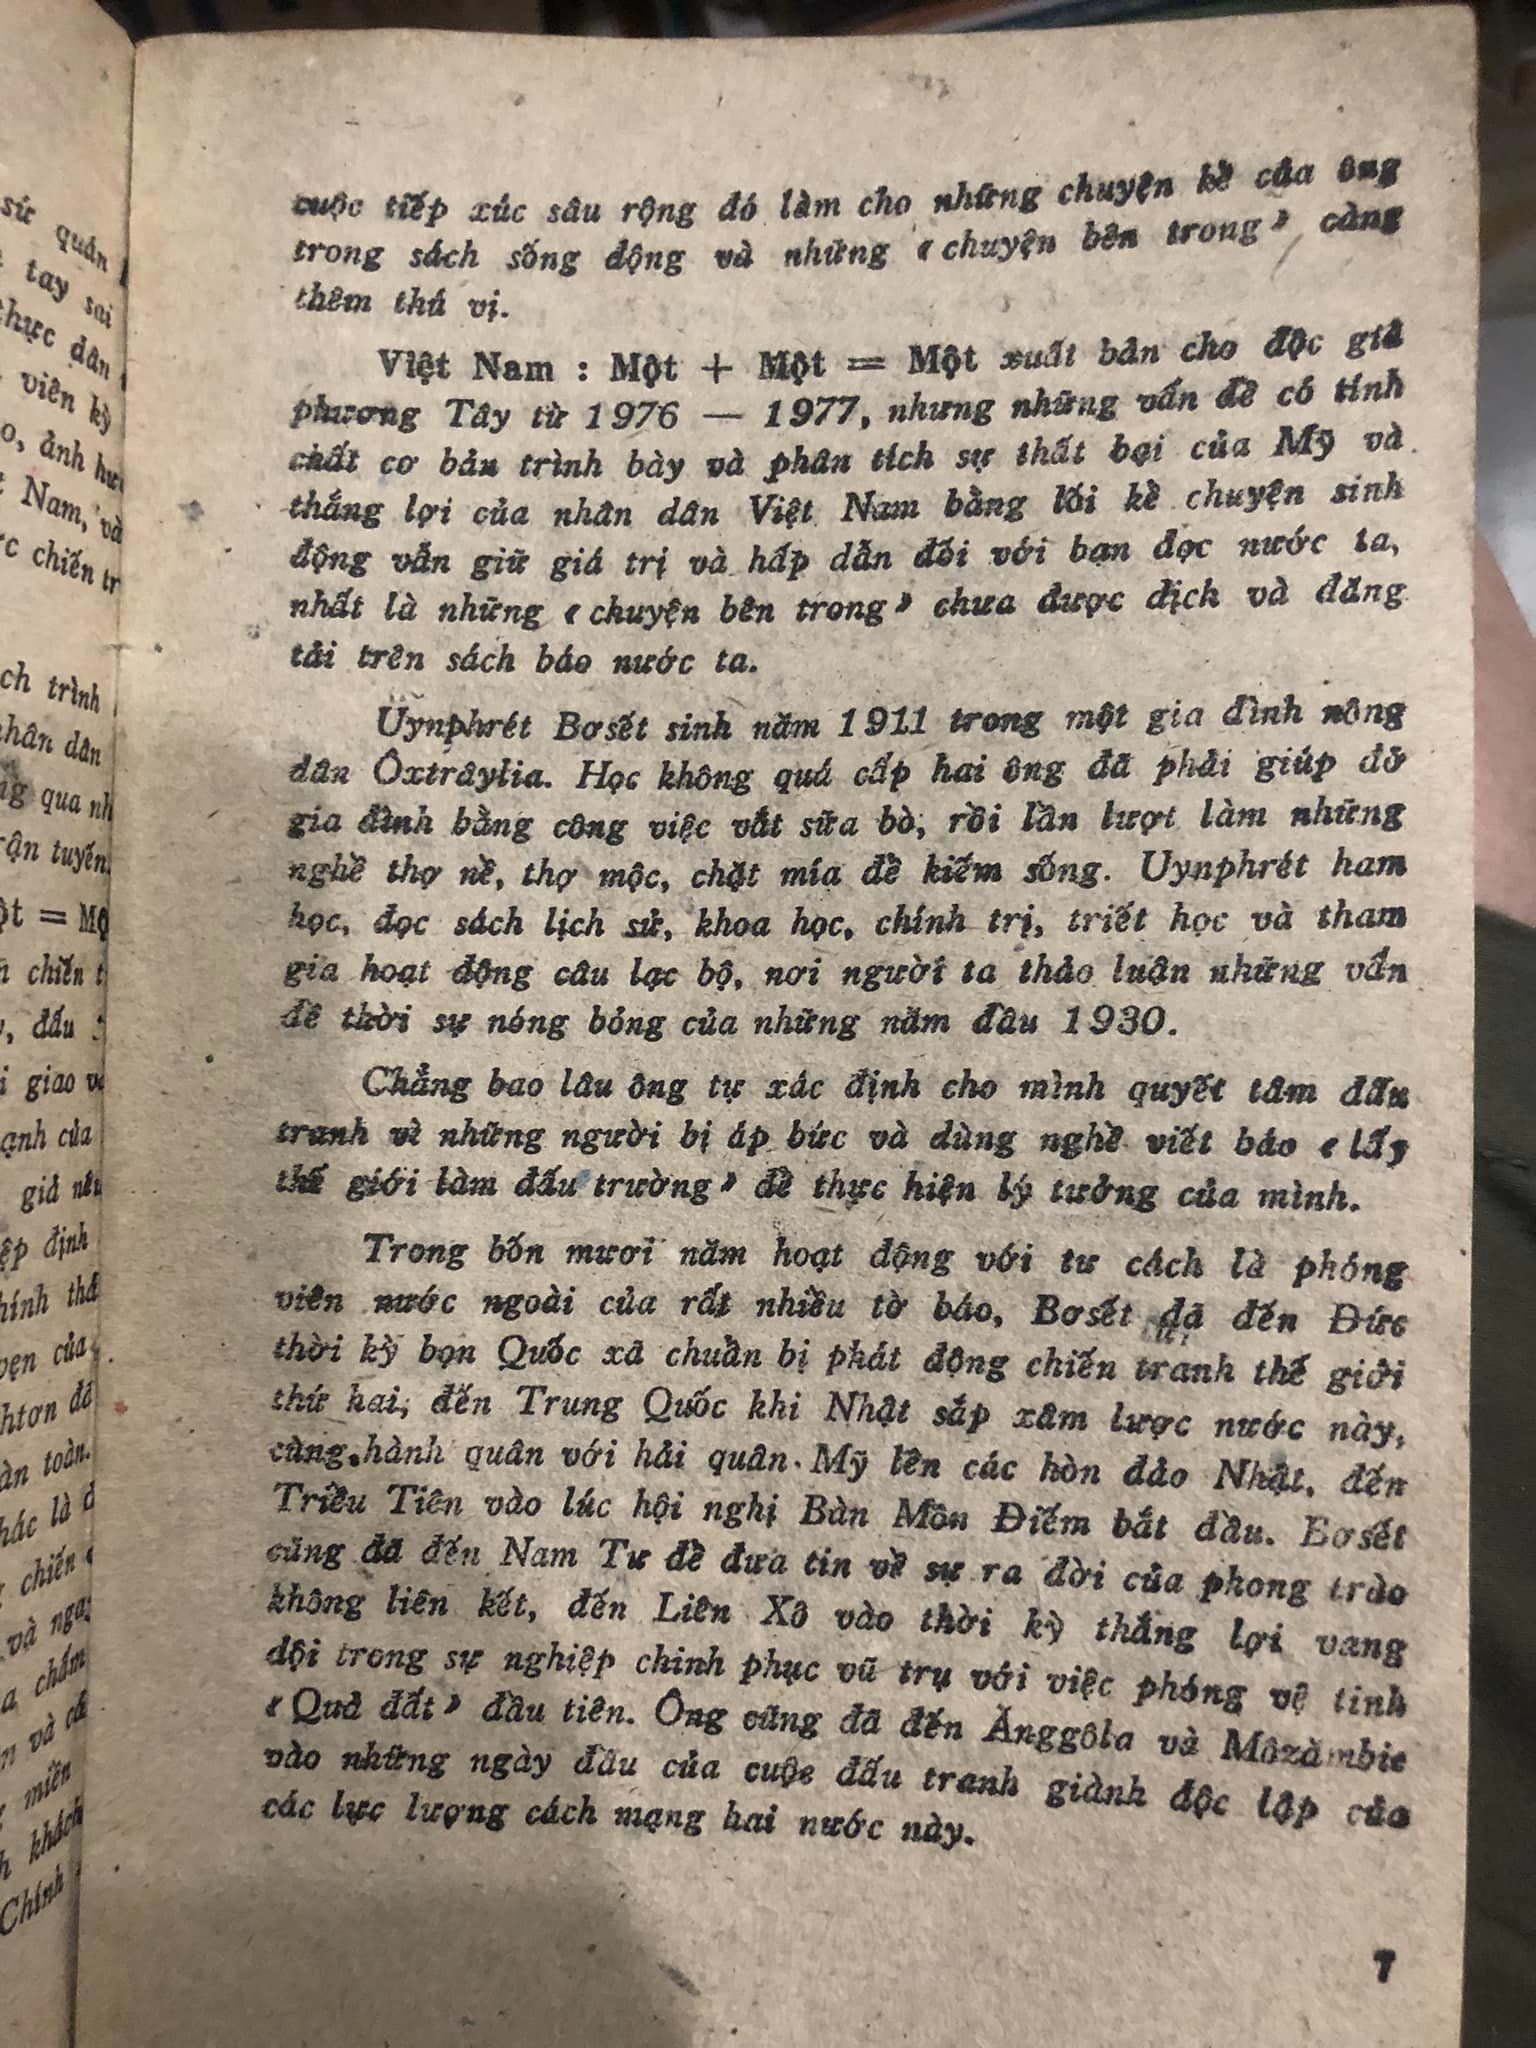 sứ quán
tay sai
thực dân
viên kỳ
o, ảnh hư
t Nam, và
ực chiến tr
ch trình
nhân dân
ng qua nh
rận tuyến.
ột = Mộ
n chiến t
, đấu
i giao v
ạnh của
giả nêu
ệp định
hính thể
vẹn của
htơn đó
àn toàn.
hác là d
chiến
và ngay
a chấm
n và cả
miền
h khách
Chính
cuộc tiếp xúc sâu rộng đó làm cho những chuyện kể của ông
trong sách sống động và những « chuyện bên trong » càng
thêm thú vị.
Việt Nam : Một + Một = Một xuất bản cho độc giả
phương Tây từ 1976 — 1977, nhưng những vấn đề có tính
chất cơ bản trình bày và phân tích sự thất bại của Mỹ và
thắng lợi của nhân dân Việt Nam bằng lối kể chuyện sinh
động vẫn giữ giá trị và hấp dẫn đối với bạn đọc nước ta,
nhất là những « chuyện bên trong » chưa được dịch và đăng
tải trên sách báo nước ta.
Uynphrét Bơsét sinh năm 1911 trong một gia đình nông
dân Ôxtrâylia. Học không quá cấp hai ông đã phải giúp đỡ
gia đình bằng công việc vắt sữa bò, rồi lần lượt làm những
nghề thợ nề, thợ mộc, chặt mía để kiếm sống. Uynphrét ham
học, đọc sách lịch sử, khoa học, chính trị, triết học và tham
gia hoạt động câu lạc bộ, nơi người ta thảo luận những vấn
đề thời sự nóng bỏng của những năm đầu 1930.
Chẳng bao lâu ông tự xác định cho mình quyết tâm đấu
tranh vì những người bị áp bức và dùng nghề viết báo « lấy
thế giới làm đấu trường » để thực hiện lý tưởng của mình.
Trong bốn mươi năm hoạt động với tư cách là phóng
viên nước ngoài của rất nhiều tờ báo, Bơsét đã đến Đức
thời kỳ bọn Quốc xã chuẩn bị phát động chiến tranh thế giới
thứ hai, đến Trung Quốc khi Nhật sắp xâm lược nước này,
cùng hành quân với hải quân Mỹ lên các hòn đảo Nhật, đến
Triều Tiên vào lúc hội nghị Bàn Môn Điếm bắt đầu. Bơsét
cũng đã đến Nam Tư để đưa tin về sự ra đời của phong trào
không liên kết, đến Liên Xô vào thời kỳ thắng lợi vang
dội trong sự nghiệp chinh phục vũ trụ với việc phóng vệ tinh
« Quả đất » đầu tiên. Ông cũng đã đến Ănggôla và Môzămbic
vào những ngày đầu của cuộc đấu tranh giành độc lập của
các lực lượng cách mạng hai nước này.
7